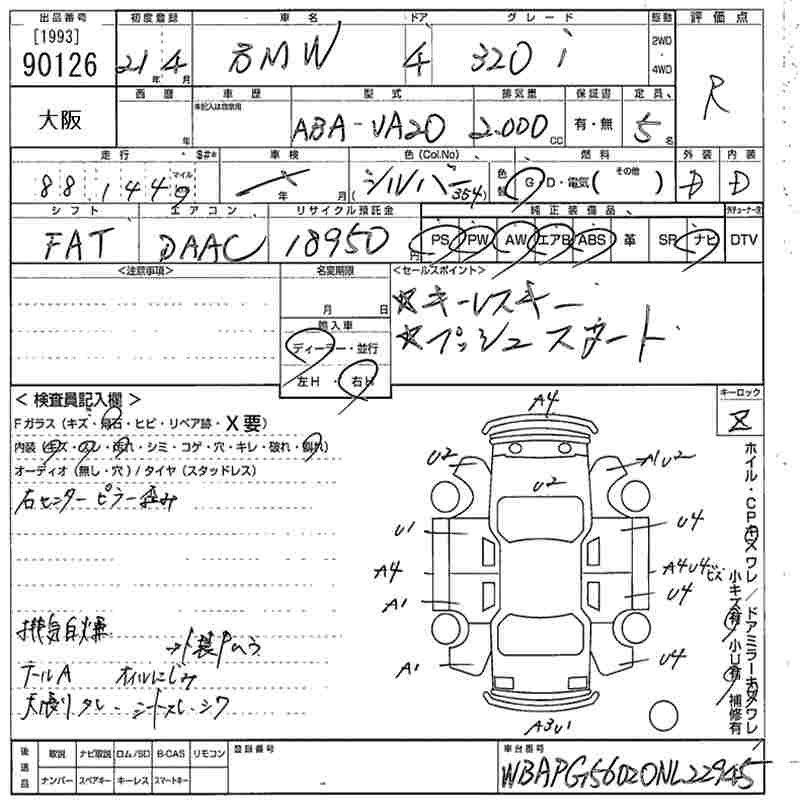 出品番号 初度登録 車名 ドア グレード 駆動 評価点
[1993]
90126 21年 4月 BMW 4 320i 2WD・4WD R
大阪 西暦 年 車歴 未記入は自家用 型式 排気量 保証書 定員
ABA-VA20 2.000cc 有・無 5名
走行 $#* 車検 色(Col.No) 燃料 外装 内装
88,149 マイル 年 月 (シルバー 354) 色替 G・D・電気( その他 ) D D
シフト エアコン リサイクル預託金 純正装備品
FAT DAAC 18950円 PS PW AW エアB ABS 革 SR ナビ DTV
<注意事項> 名変期限 <セールスポイント>
月 日 ☆キーレスキー
輸入車 ☆プッシュスタート
ディーラー・並行
左H・右H
<検査員記入欄> キーロック
Fガラス(キズ・飛石・ヒビ・リペア跡・X要)
内装(キズ・スレ・汚れ・シミ・コゲ・穴・キレ・破れ・剥れ)
オーディオ(無し・穴)/タイヤ(スタッドレス)
右センターピラー歪み
排気自爆
テールA オイルにじみ
天張りタレ シートスレ・シワ
A4
U2 U2 A1U2
U1 U4
A4 A4U4ビズ
A1 U4
A1 U4
A3U1
ホイル・CPキズワレ/ドアミラーキズワレ
小キズ有 小U有 補修有
後送品 取説 ナビ取説 ロム/SD B-CAS リモコン 登録番号 車台番号
ナンバー スペアキー キーレス スマートキー WBAPG56020NL22945